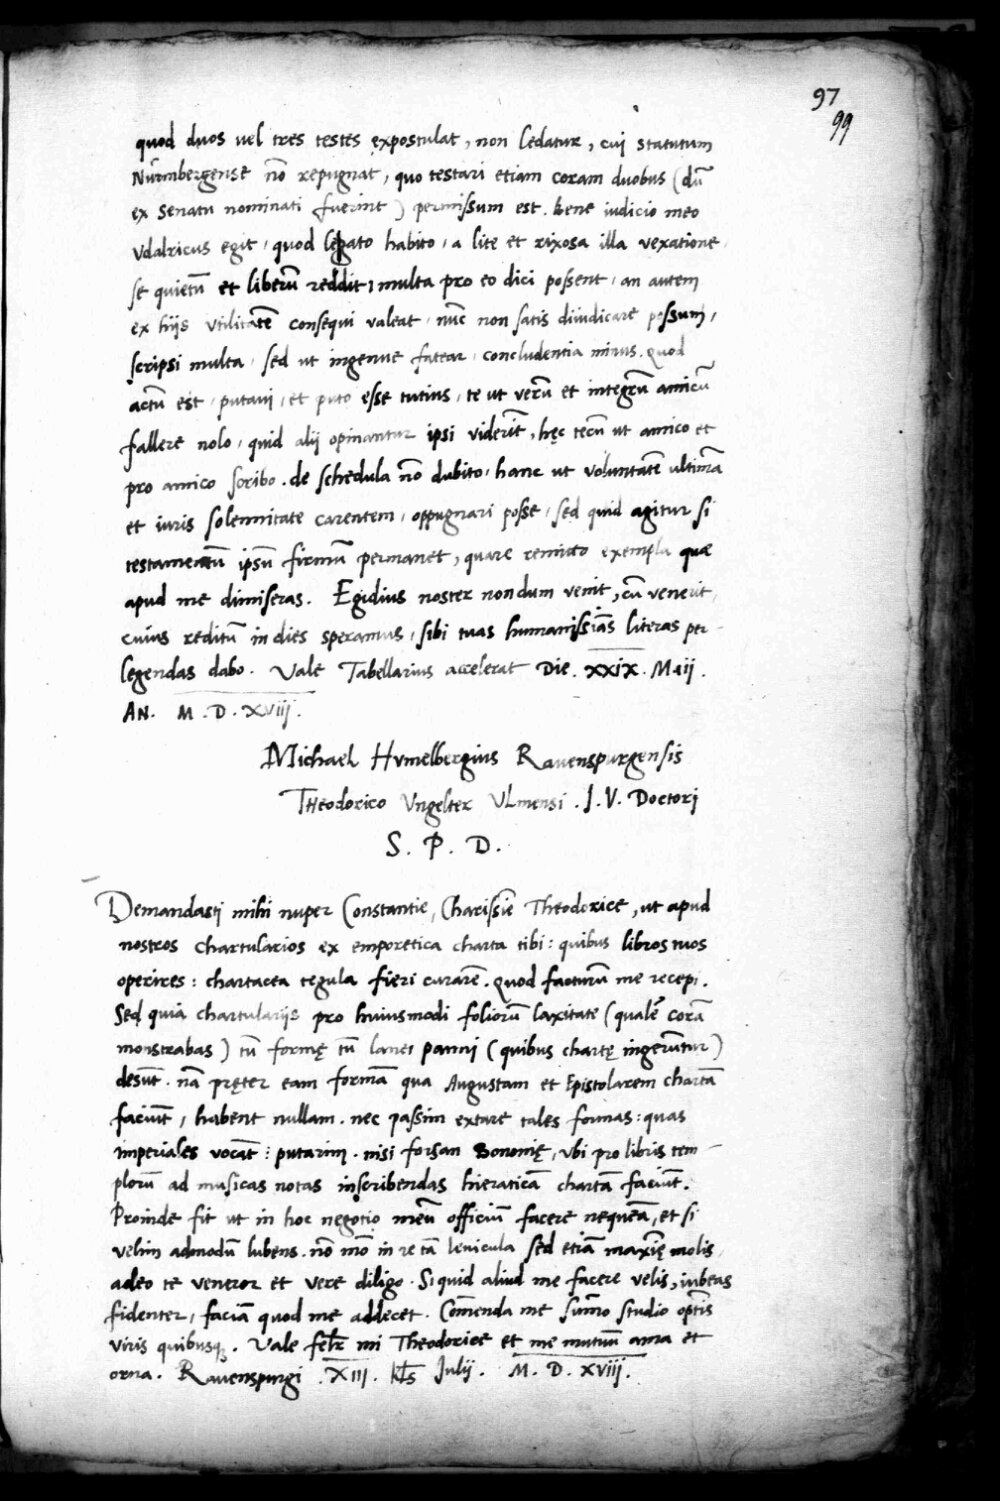 97
99
quod duos uel tres testes expostulat, non ledatur, cuj statutum
Nurmbergense nō repugnat, quo testari etiam coram duobus (dū
ex Senatu nominati fuerint) permissum est. Bene iudicio meo
Vdalricus egit, quod legato habito, a lite et rixosa illa vexatione,
se quietū et liberū reddit, multa pro eo dici possent, an autem
ex hijs vtilitatē consequi valeat, nūc non satis diiudicare possum,
scripsi multa, sed ut ingenue fatear, concludentia minus. Quod
actū est, putaui, et puto esse tutius, te ut verū et integrū amicū
fallere nolo, quid alij opinantur ipsi viderīt, hęc tecū ut amico et
pro amico scribo. de schedula nō dubito, hanc ut voluntatē ultimā
et iuris solennitate carentem, oppugnari posse, sed quid agitur si
testamentū ipsū firmū permanet, quare remitto exempla quæ
apud me dimiseras. Egidius noster nondum venit, cū venerit,
cuius reditū in dies speramus, sibi tuas humanissīas literas per-
legendas dabo. Vale Tabellarius accelerat Die. XXIX. Maij.
AN. M. D. XViij.
Michael Hvmelbergius Rauenspurgensis
Theodorico Vngelter VLmensi. J. V. Doctorj
S. P. D.
Demandastj mihi nuper Constantie, Charissīe Theodorice, ut apud
nostros chartularios ex emporetica charta tibi: quibus libros tuos
operires: chartacea tegula fieri curarē. Quod facturū me recepi.
Sed quia chartularijs pro huiusmodi foliorū laxitate (qualē corā
monstrabas) tū formę tū lanei panni (quibus chartę ingerūtur)
desūt. nā pręter eam formā qua Augustam et Epistolarem chartā
faciūt, habent nullam. nec passim extare tales formas: quas
imperiales vocāt: putarim. nisi forsan Bononię, vbi pro libris tem-
plorū ad musicas notas inscribendas hieraticā chartā faciūt.
Proinde fit ut in hoc negotio meū officiū facere nequeā, et si
velim admodū lubens. nō mō in re tā lenicula sed etiā maxīę molis,
adeo te veneror et vere diligo. Si quid aliud me facere velis, iubeas
fidenter, faciā quod me addecet. Cōmenda me sūmo studio optīs
viris quibusq. Vale felr mi Theodorice et me mutuū ama et
orna. Rauenspurgi. XIII. kls Julij. M. D. XViij.